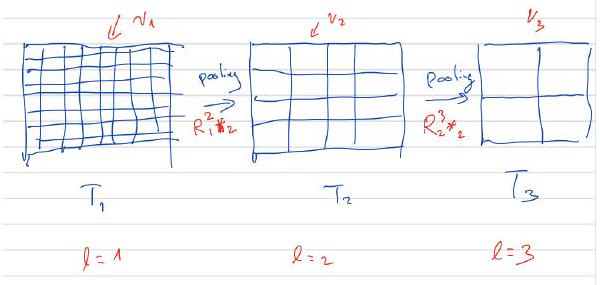 V₁ V₂ V₃
pooling pooling
R₁² *₂ R₂³ *₂
T₁ T₂ T₃
l=1 l=2 l=3